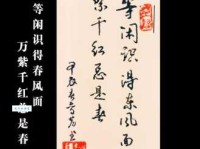 等闲识得春风面
万紫千红总是春
等闲识得东风面
紫千红总是春